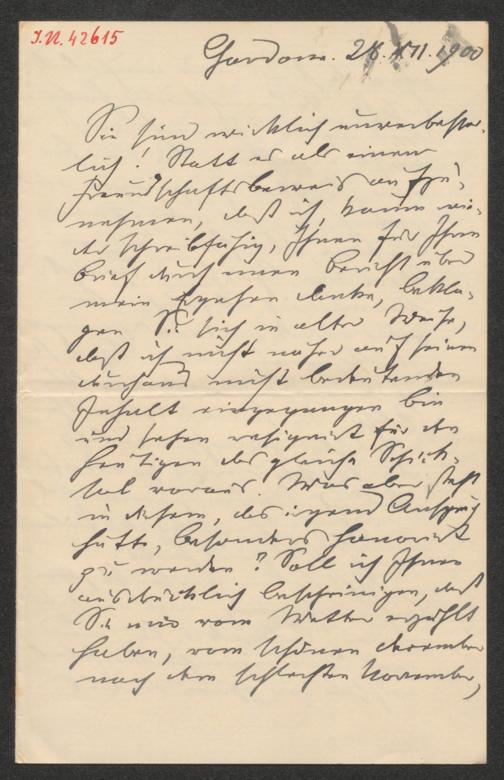 I.N. 42615
Gardone. 28. XII. 1900
Sie sind wirklich unverbesser-
lich! Statt es als einen
Freundschaftsbeweis aufzu-
nehmen, daß ich, kaum wie-
der schreibfähig, Ihnen für Ihren
Brief durch einen Bericht über
mein Ergehen danke, bekla-
gen Sie sich in alter Weise,
daß ich nicht näher auf seinen
durchaus nicht bedeutenden
Inhalt eingegangen bin
und sehen resignirt für den
heutigen das gleiche Schick-
sal voraus. Was aber steht
in diesem, das irgend Anspruch
hätte, besonders honorirt
zu werden? Soll ich Ihnen
ausdrücklich bescheinigen, daß
Sie mir vom Wetter erzählt
haben, vom schönen December
nach dem schlechten November,